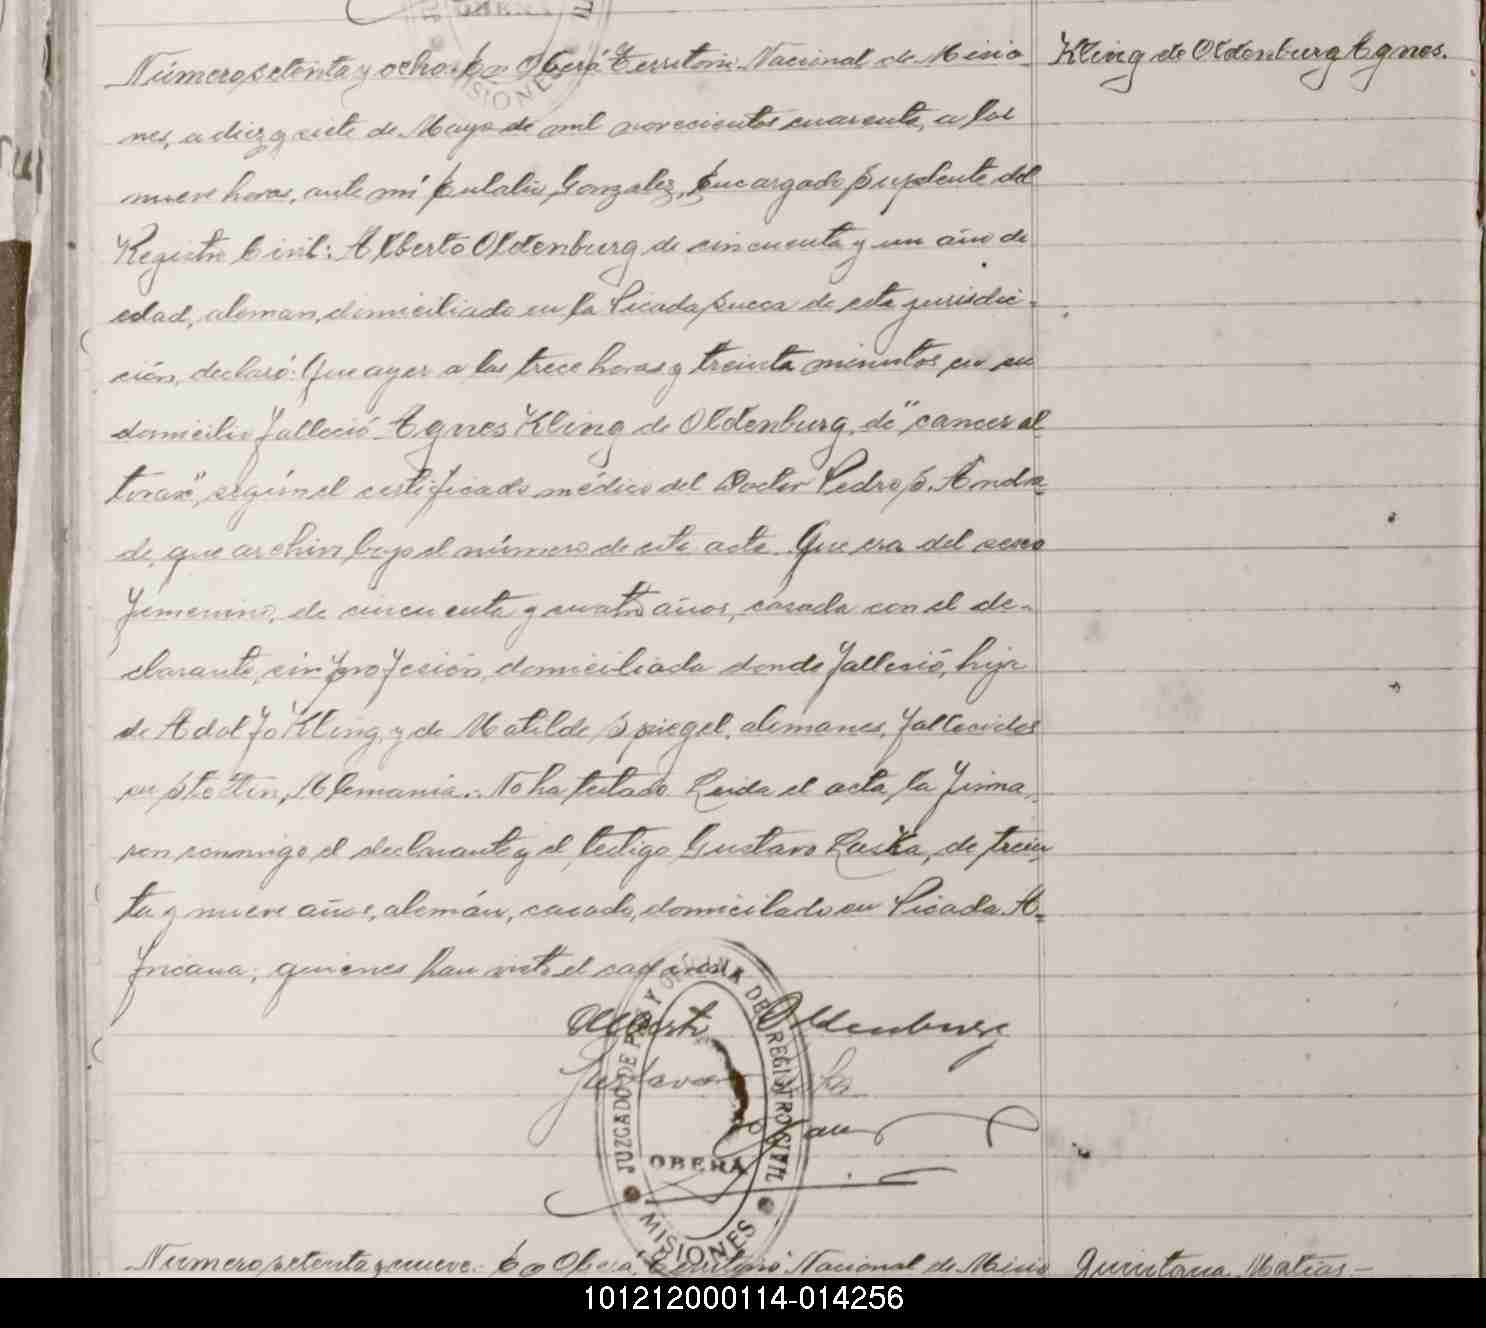 Número setenta y ocho. En Oberá Territorio Nacional de Misio-
nes, a diez y siete de Mayo de mil novecientos cuarenta, a las
nueve horas, ante mí Eulalio Gonzalez, Encargado Suplente del
Registro Civil: Alberto Oldenburg de cincuenta y un año de
edad, aleman, domiciliado en la Picada Sueca de esta jurisdic-
ción, declaró: Que ayer a las trece horas y treinta minutos en su
domicilio falleció Agnes Kling de Oldenburg, de "cancer al
torax", según el certificado médico del Doctor Pedro S. Andra-
de, que archivo bajo el número de esta acta. Que era del sexo
femenino, de cincuenta y cuatro años, casada con el de-
clarante, sin profesión, domiciliada donde falleció, hija
de Adolfo Kling, y de Matilde Spiegel, alemanes, fallecidos
en Stettin, Alemania. No ha testado. Leida el acta, la firma-
ron conmigo el declarante y el testigo Gustavo Laska, de trein-
ta y nueve años, alemán, casado, domiciliado en Picada A-
fricana; quienes han visto el cadáver
Albert Oldenburg
Gustavo
JUZGADO DE PAZ Y OFICINA DEL REGISTRO CIVIL
OBERÁ
MISIONES
Número setenta y nueve. En Oberá, Territorio Nacional de Misio
Kling de Oldenburg Agnes.
Quintana, Matias-
MISIONES
101212000114-014256